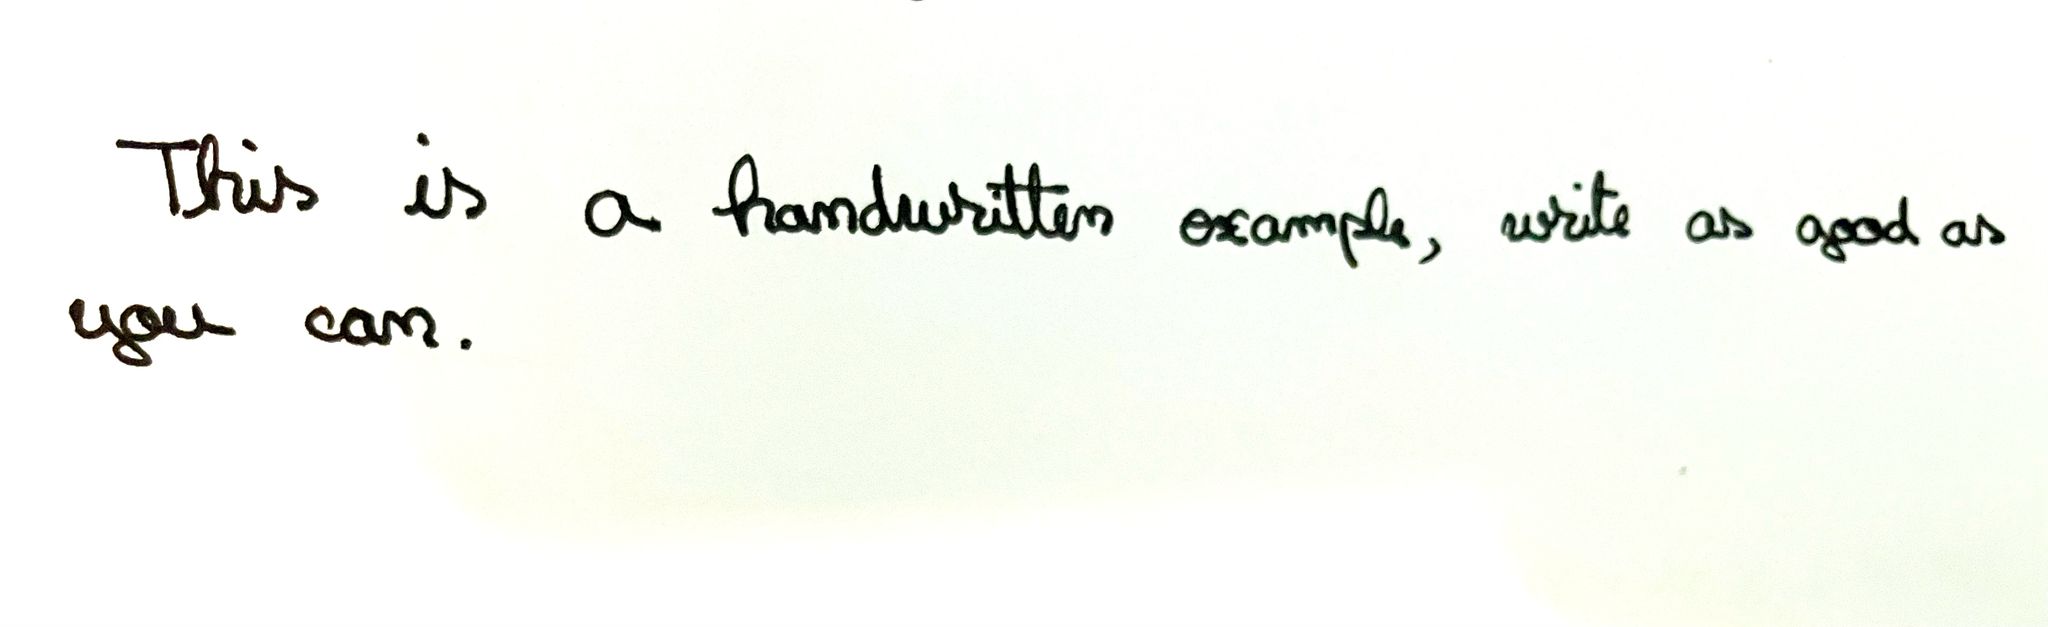 This is a handwritten example, write as good as
you can.